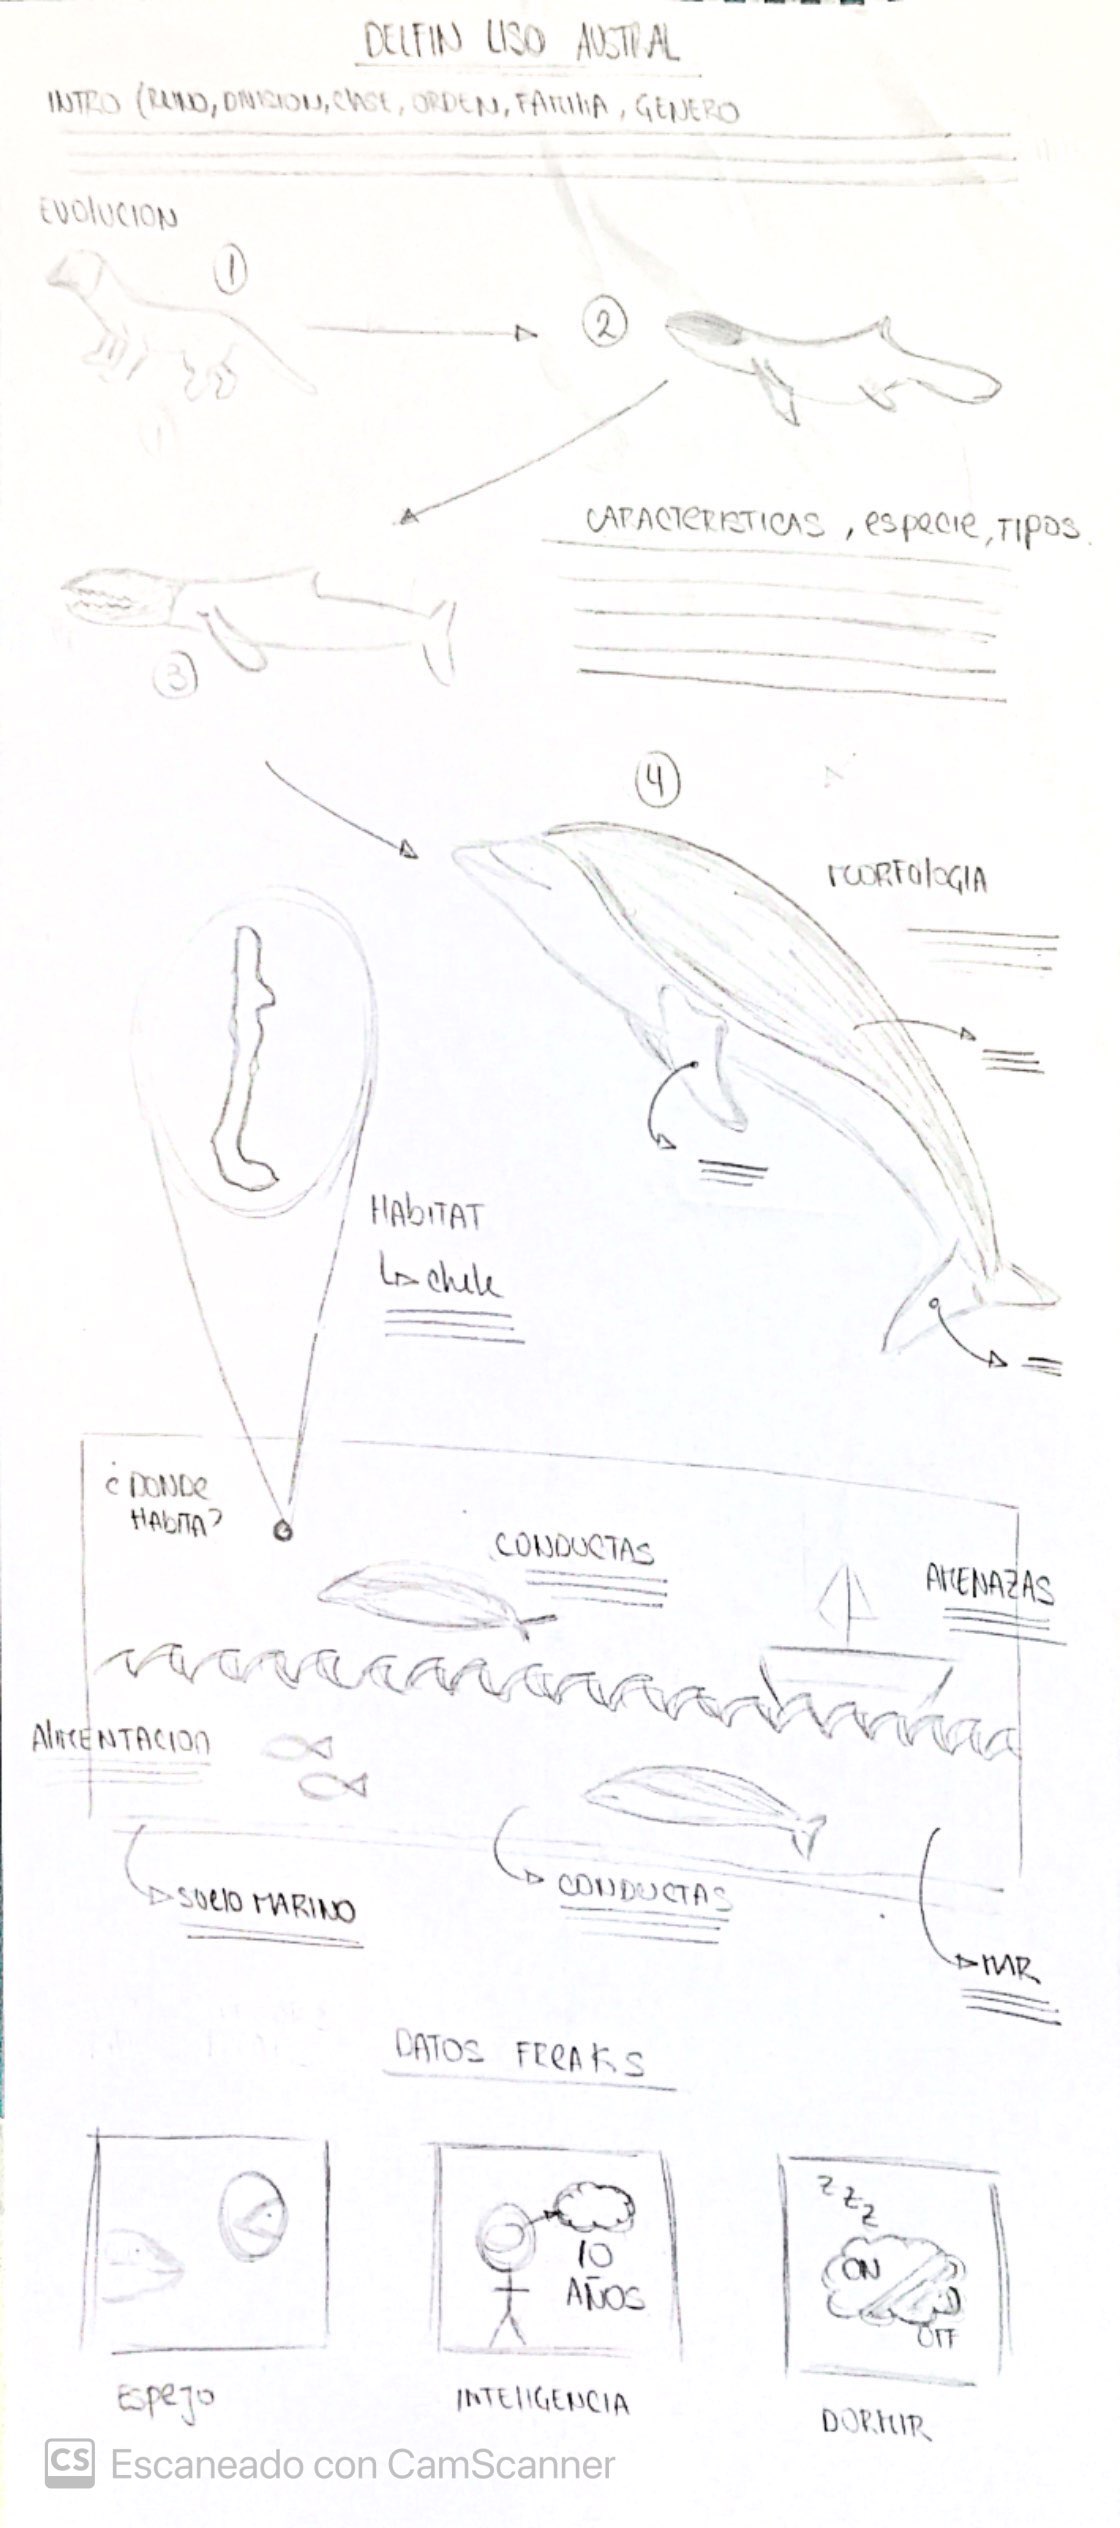 DELFIN LISO AUSTRAL
INTRO (REINO, DIVISION, CLASE, ORDEN, FAMILIA, GENERO
EVOLUCION
1
2
CARACTERISTICAS, especie, TIPOS.
3
4
MORFOLOGIA
HABITAT
chile
¿DONDE
HABITA?
CONDUCTAS
AMENAZAS
ALIMENTACION
SUELO MARINO
CONDUCTAS
MAR
DATOS FREAKS
10
AÑOS
Z Z Z
ON
OFF
ESPEJO
INTELIGENCIA
DORMIR
CS Escaneado con CamScanner